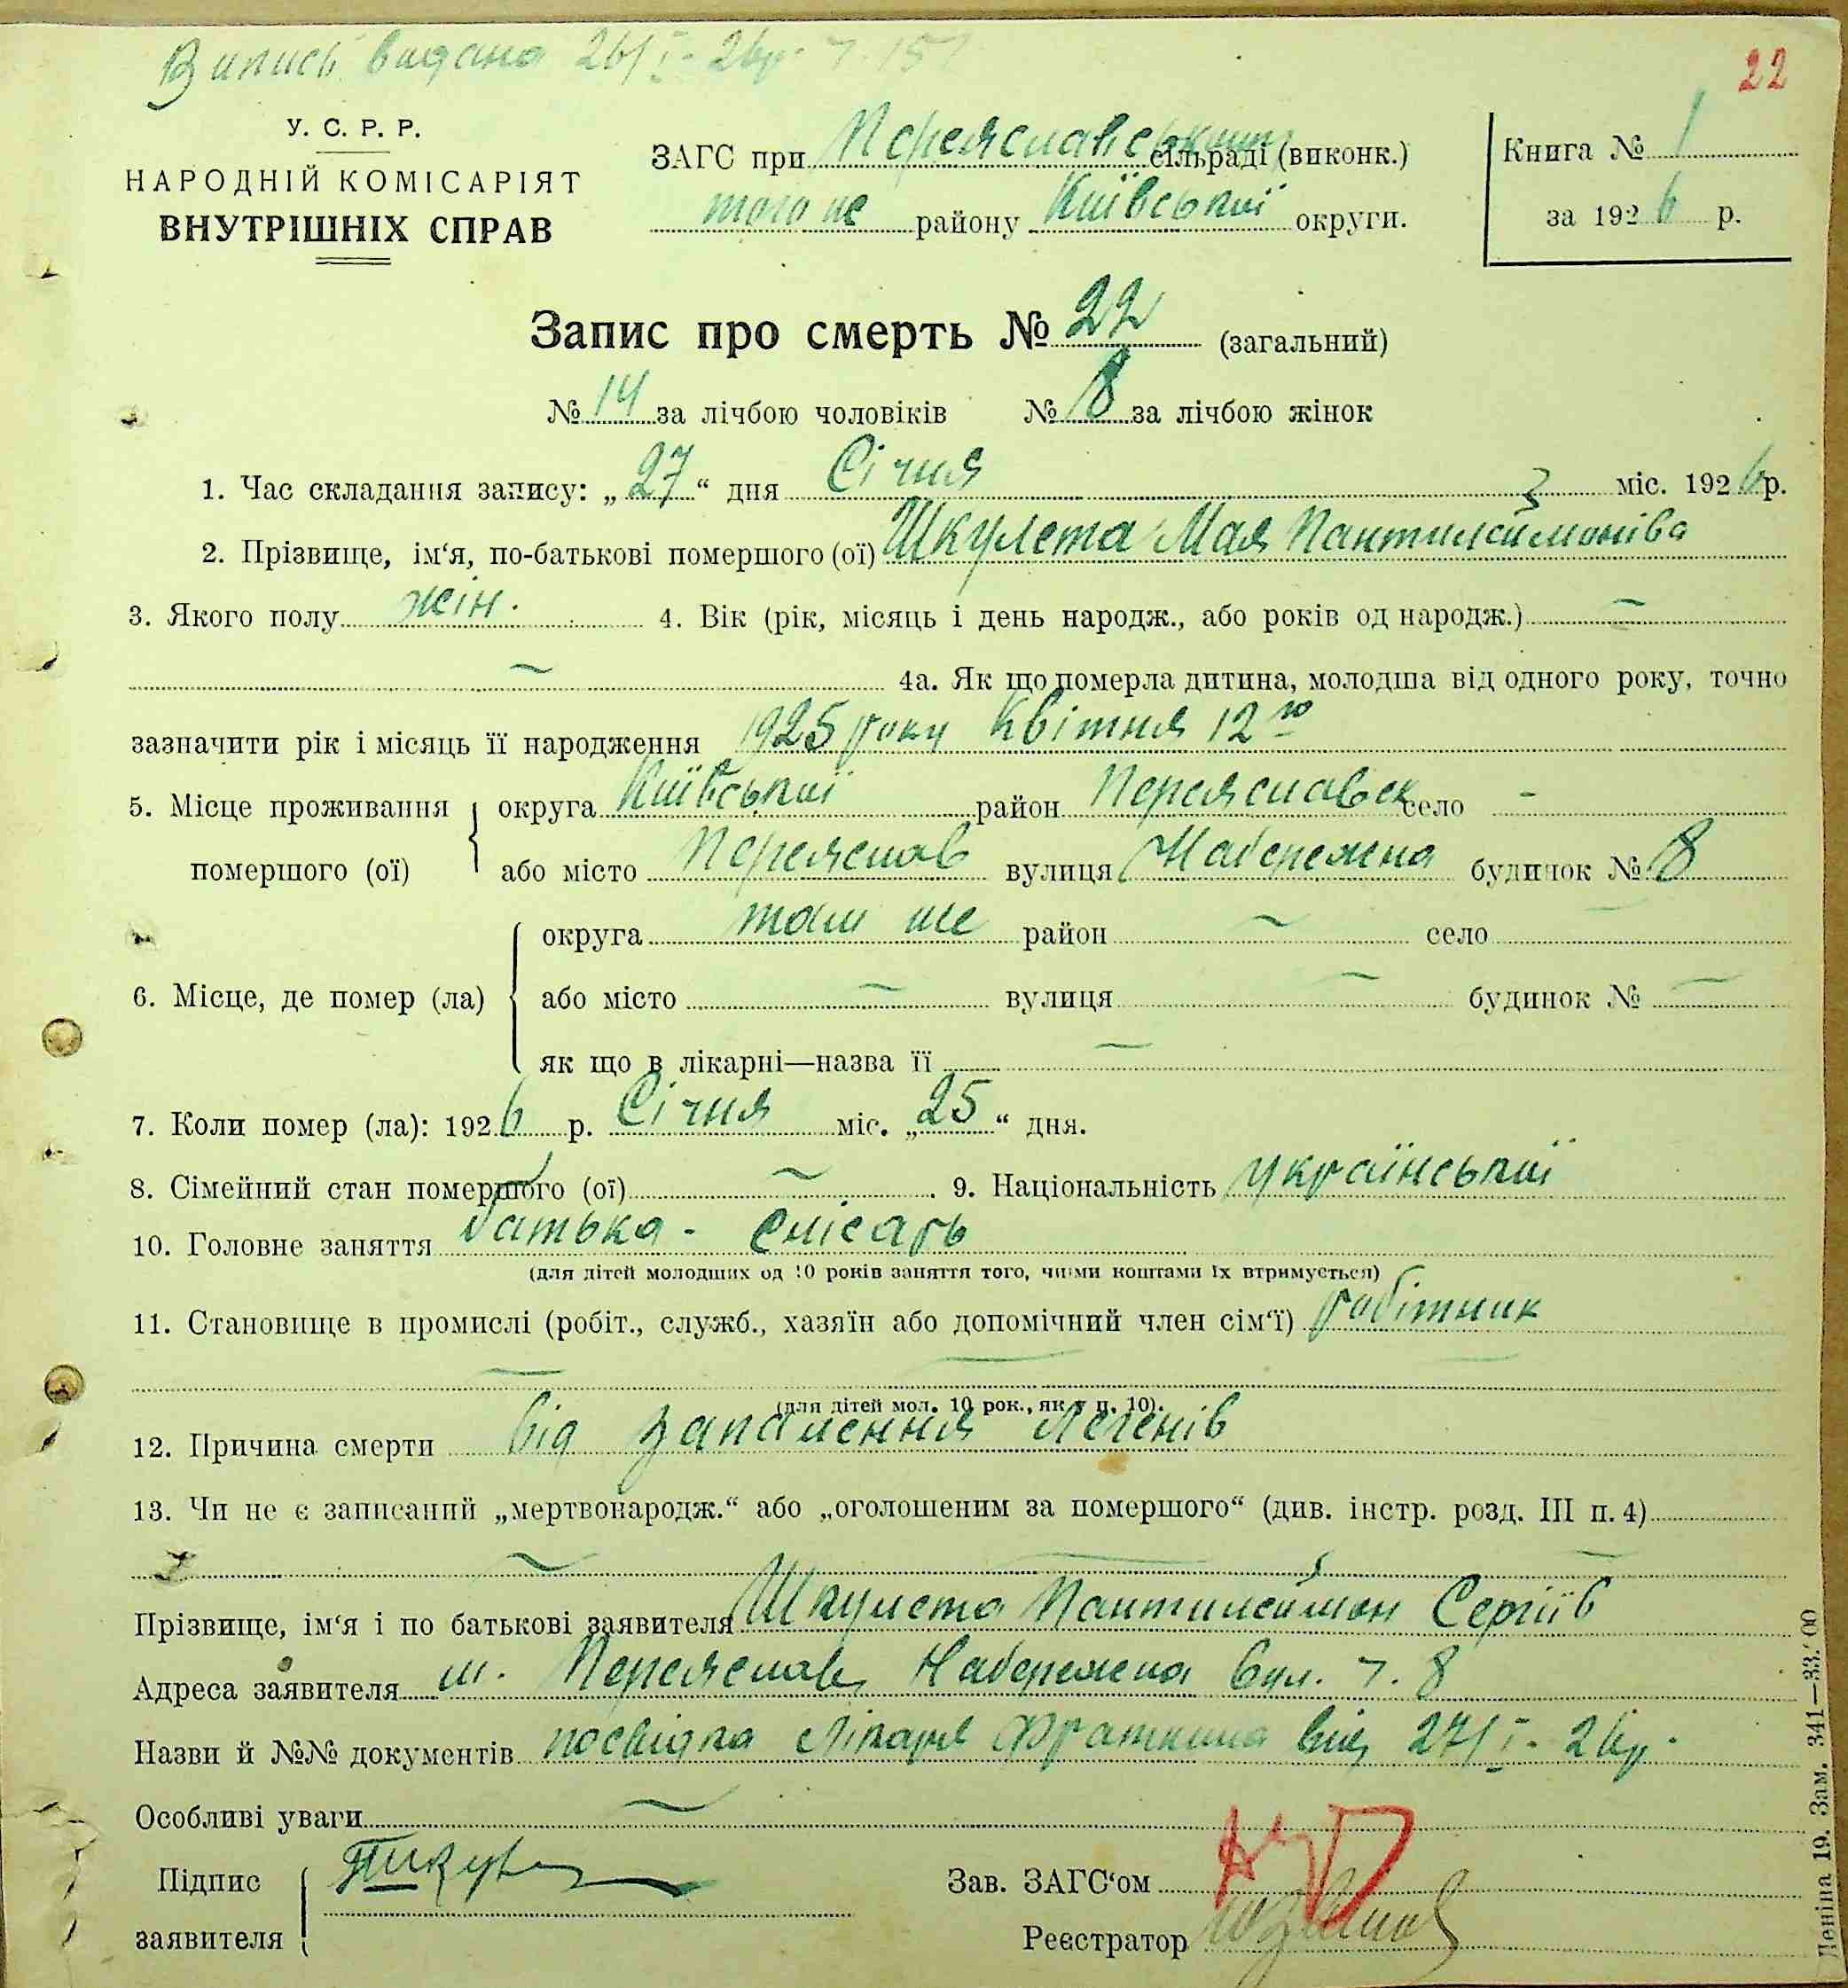 Випись видана 26/I-26р. ч. 157
22
У. С. Р. Р.
НАРОДНІЙ КОМІСАРІЯТ
ВНУТРІШНІХ СПРАВ
ЗАГС при Переяславськім сільраді (виконк.)
того ж району Київської округи.
Книга № 1
за 1926 р.
Запис про смерть № 22 (загальний)
№ 14 за лічбою чоловіків № 8 за лічбою жінок
1. Час складання запису: „27“ дня Січня міс. 1926 р.
2. Прізвище, ім‘я, по-батькові помершого (ої) Шкулета Мая Пантилеймонівa
3. Якого полу жін. 4. Вік (рік, місяць і день народж., або років од народж.) —
— 4а. Як що померла дитина, молодша від одного року, точно
зазначити рік і місяць її народження 1925 року Квітня 12го
5. Місце проживання округа Київської район Переяславськ село -
помершого (ої) або місто Переяслав вулиця Набережна будинок № 8
округа там же район — село
6. Місце, де помер (ла) або місто — вулиця — будинок № —
як що в лікарні—назва її —
7. Коли помер (ла): 1926 р. Січня міс. „25“ дня.
8. Сімейний стан помершого (ої) — 9. Національність української
10. Головне заняття батька - слісарь
(для дітей молодших од 10 років заняття того, чиїми коштами їх втримується)
11. Становище в промислі (робіт., служб., хазяїн або допомічний член сім‘ї) робітник
(для дітей мол. 10 рок., як у п. 10).
12. Причина смерти від запалення легенів
13. Чи не є записаний „мертвонародж.“ або „оголошеним за помершого“ (див. інстр. розд. III п. 4)
—
Прізвище, ім‘я і по батькові заявителя Шкулета Пантилеймон Сергіїв
Адреса заявителя м. Переяслав, Набережна вул. ч. 8
Назви й №№ документів посвідка лікаря Фраткина від 27/I-26р.
Особливі уваги —
Підпис
заявителя
Зав. ЗАГС‘ом
Реєстратор
Леніна 19. Зам. 341—33.000